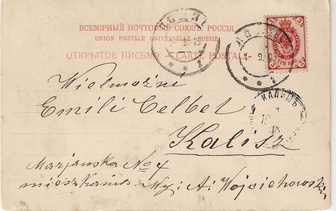 ВСЕМІРНЫЙ ПОЧТОВЫЙ СОЮЗЪ. РОССІЯ.
UNION POSTALE UNIVERSELLE. RUSSIE
ОТКРЫТОЕ ПИСЬМО. CARTE POSTALE
Wielmożni
Emili
Kalisz
Marjanska No 4
mieszkanie Wej: A: Wojciechowski